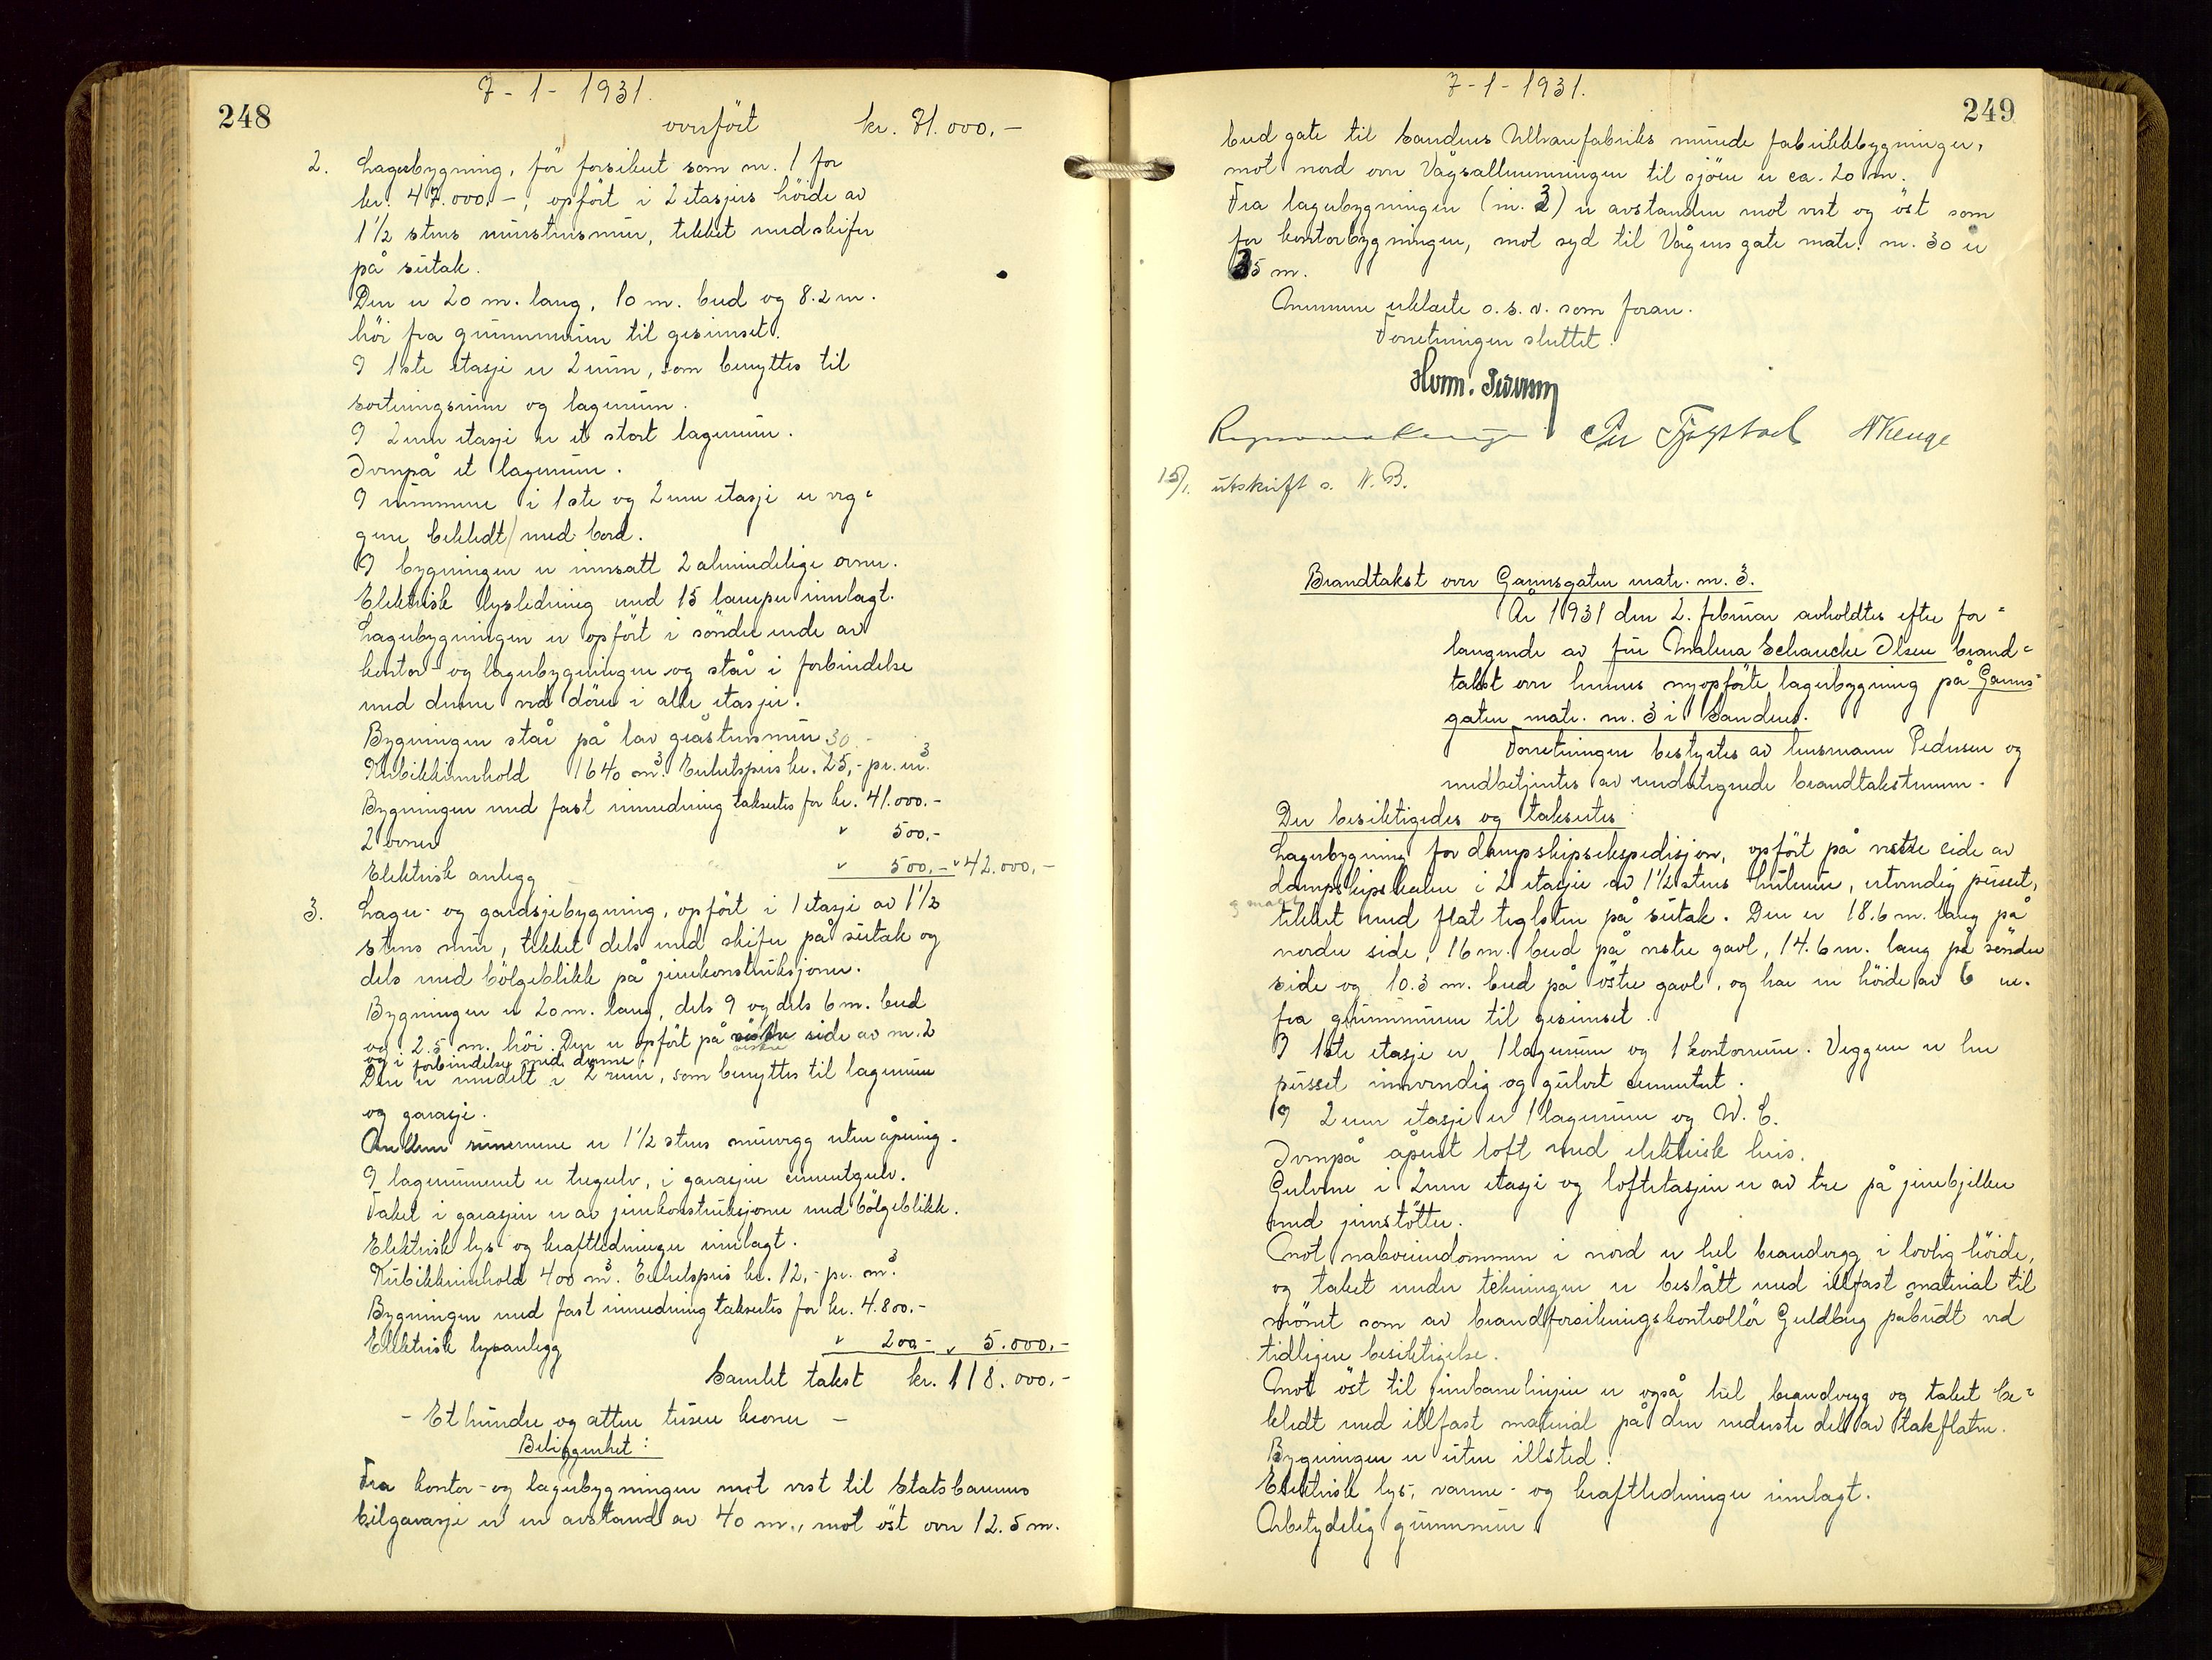 248
7-1-1931.
overført kr. 71.000,-
2. Lagerbygning, før forsikret som nr. 1 for
kr. 47.000,-, opført i 2 etasjers höide av
1 1/2 stens murstensmur, tekket med skifer
på sutak.
Den er 20 m. lang, 10 m. bred og 8.2 m.
höi fra grunnmuren til gesimset.
I 1ste etasje er 2 rum, som benyttes til
sorteringsrum og lagerrum.
I 2nen etasje er et stort lagerrum.
Ovenpå et lagerrum.
I rummene i 1ste og 2nen etasje er veg-
gene bekledt med bord.
I bygningen er innsatt 2 almindelige ovner.
Elektrisk lysledning med 15 lamper innlagt.
Lagerbygningen er opfört i söndre ende av
kontor- og lagerbygningen og står i forbindelse
med denne ved dörer i alle etasjer.
Bygningen står på lav gråstensmur 30.-
Kubikkinnhold 1640 m³. Enhetspris kr. 25,- pr. m³.
Bygningen med fast innredning takseres for kr. 41.000.-
2 ovner " 500,-
Elektrisk anlegg " 500,- " 42.000,-
3. Lager- og garasjebygning, opfört i 1 etasje av 1 1/2
stens mur, tekket dels med skifer på sutak og
dels med bölgeblikk på jernkonstruksjoner.
Bygningen er 20 m. lang, dels 9 og dels 6 m. bred
og 2.5 m. höi. Den er opfört på vestre side av nr. 2
og i forbindelse med denne.
Den er inndelt i 2 rum, som benyttes til lagerrum
og garasje.
Mellem rummene er 1 1/2 stens murvegg uten åpning.
I lagerrummet er tregulv, i garasjen cementgulv.
Taket i garasjen er av jernkonstruksjoner med bölgeblikk.
Elektrisk lys og kraftledninger innlagt.
Kubikkinnhold 400 m³. Enhetspris kr. 12,- pr. m³.
Bygningen med fast innredning takseres for kr. 4.800.-
Elektrisk lysanlegg " 200.- " 5.000,-
Samlet takst kr. 118.000,-
- Et hundre og atten tusen kroner -
Beliggenhet:
Fra kontor- og lagerbygningen mot vest til Statsbanens
bilgarasje er en avstand av 40 m., mot öst over 12.5 m.
249
7-1-1931.
bred gate til Sandnes Uldvarefabriks murede fabrikkbygninger,
mot nord over Vågsallmenningen til sjöen er ca. 20 m.
Fra lagerbygningen (nr. 3) er avstanden mot vest og öst som
for kontorbygningen, mot syd til Vågensgate matr. nr. 30 er
35 m.
Mennene erklærte o.s.v. som foran.
Forretningen sluttet.
Herm. Pedersen
Per Tjøstad N Kenge
15/1. utskrift s. N.B.
Brandtakst over Gannsgaten matr. nr. 3.
År 1931 den 2. februar avholdtes efter for-
langende av fru Malena Schancke Olsen brand-
takst over hennes nyopförte lagerbygning på Ganns-
gaten matr. nr. 3 i Sandnes.
Forretningen bestyrtes av lensmann Pedersen og
medbetjentes av undertegnede brandtakstmenn.
Der besiktigedes og takseres:
Lagerbygning for dampskipsekspedisjon, opfört på vestre side av
dampskipskaien i 2 etasjer av 1 1/2 stens hulmur, utvendig pusset,
g malet
tekket med flat teglsten på sutak. Den er 18.6 m. lang på
nordre side, 16 m. bred på vestre gavl, 14.6 m. lang på söndre
side og 10.3 m. bred på östre gavl, og har en höide av 6 m.
fra grunnmuren til gesimset.
I 1ste etasje er 1 lagerrum og 1 kontorrum. Veggene er her
pusset innvendig og gulvet cementert.
I 2nen etasje er 1 lagerrum og W. C.
Ovenpå åpent loft med elektrisk heis.
Gulvene i 2nen etasje og loftetasjen er av tre på jernbjelker
med jernstötter.
Mot naboeiendommen i nord er hel brandvegg i lovlig höide,
og taket under tekningen er beslått med ildfast material til
mönet som av brandforsikringskontrollör Guldberg påbudt ved
tidligere besiktigelse.
Mot öst til jernbanelinjen er også hel brandvegg og taket be-
kledt med ildfast material på den nederste del av takflaten.
Bygningen er uten illsted.
Elektrisk lys-, varme- og kraftledninger innlagt.
Ubetydelig grunnmur.